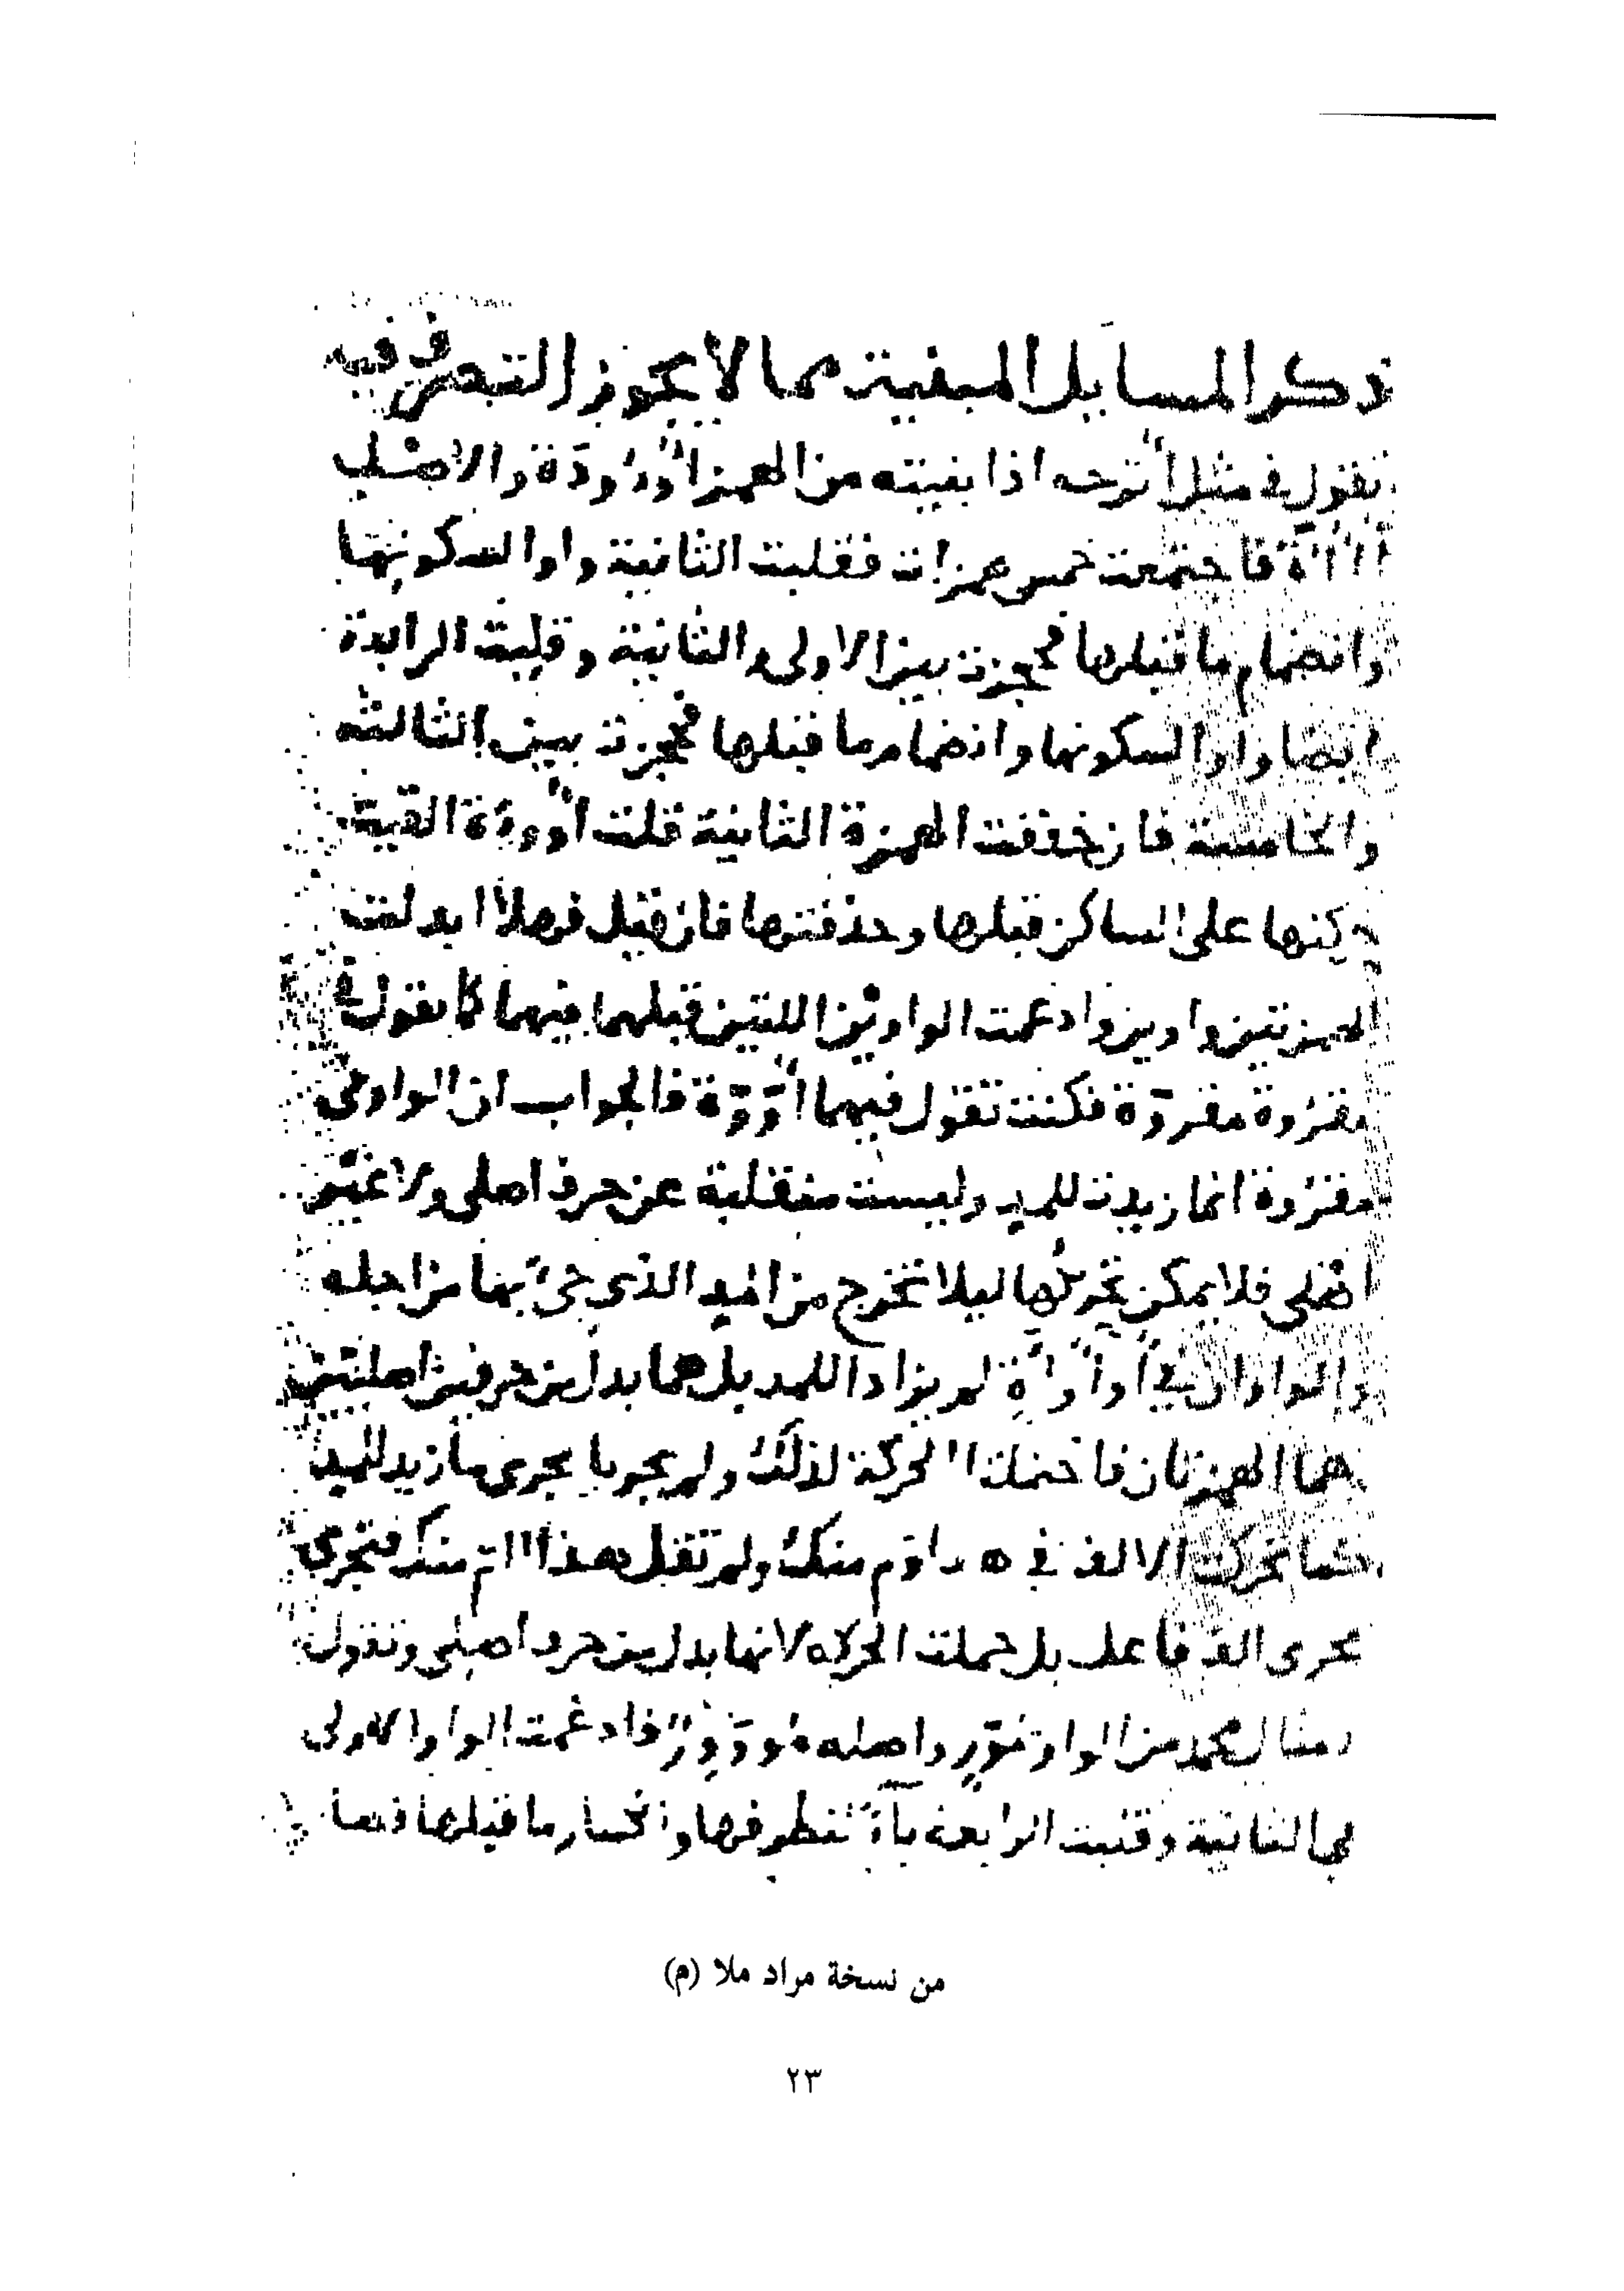 ذكر المسايل المبنية مما لا يجوز التصرف فيه
تقول في مثل أترجه اذا بنيته من الهمز أُوءُوءَة والاصل
أُأْأُأْأَة فاجتمعت خمس همزات فقلبت الثانية واوا لسكونها
وانضمام ما قبلها فحجزت بين الاولى والثانية وقلبت الرابعة
ايضا واوا لسكونها وانضمام ما قبلها فحجزت بين الثالثة
والخامسة فان خففت الهمزة الثانية قلت القيت
حركتها على الساكن قبلها وحذفتها فان قيل فهلا ابدلت
الهمزتين واوين وادغمت الواوين اللتين قبلهما فيهما كما تقول في
مقروءة مقروّة فكنت تقول فيهما أُوُّوَّة فالجواب ان الواو في
مقروءة انما زيدت للمد وليست منقلبة عن حرف اصلي ولا غير
اصلي فلا يمكن تحريكها ليلا تخرج من المد الذي جيء بها من اجله
والواوان في لم يزادا للمد بل هما بدل من حرفين اصليين
هما الهمزتان فاحتملتا الحركة لذلك ولم يجريا مجرى ما زيد للمد
كما تحركت الالف في هذا اوم منك ولم تقل هذا اام منك فتجري
مجرى الف فاعل بل حملت الحركة لانها بدل من حرف اصلي وتقول
في مثال محمد من الواو مُوَّوٍّ واصله مُوَوَّوٌ فادغمت الواو الاولى
في الثانية وقلبت الرابعة ياءً لتطرفها وانكسار ما قبلها فصا
من نسخة مراد ملا (م)
٢٣